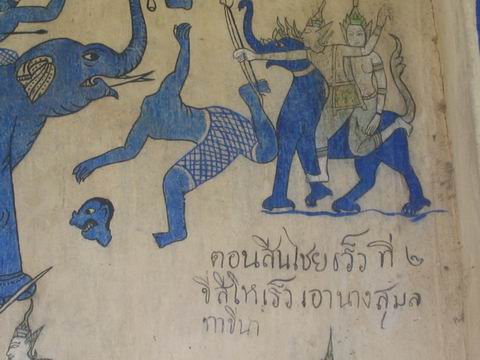 ตอนสินไชยเร็ว ที่ ๒
ขี่สีโหเร็วเอานางสุมล
ทาขึนา